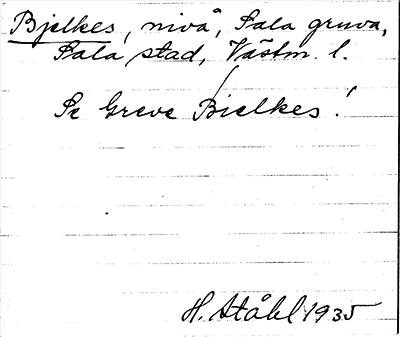 Bjelkes, nivå, Sala gruva,
Sala stad, Västm. l.
Se Greve Bielkes!
H. Ståhl 1935